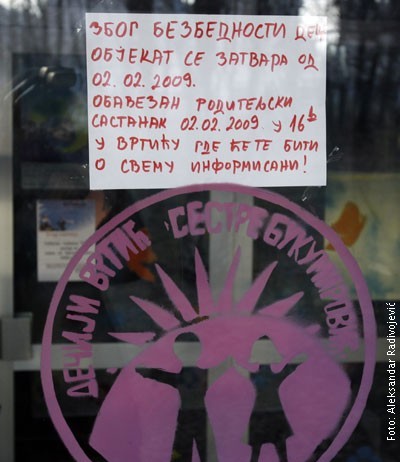 ЗБОГ БЕЗБЕДНОСТИ ДЕЦЕ
ОБЈЕКАТ СЕ ЗАТВАРА ОД
02. 02. 2009.
ОБАВЕЗАН РОДИТЕЉСКИ
САСТАНАК 02.02.2009 У 16h
У ВРТИЋУ ГДЕ ЋЕТЕ БИТИ
О СВЕМУ ИНФОРМИСАНИ!
ДЕЧИЈИ ВРТИЋ СЕСТРЕ БУКУМИРОВИЋ
Foto: Aleksandar Radivojević